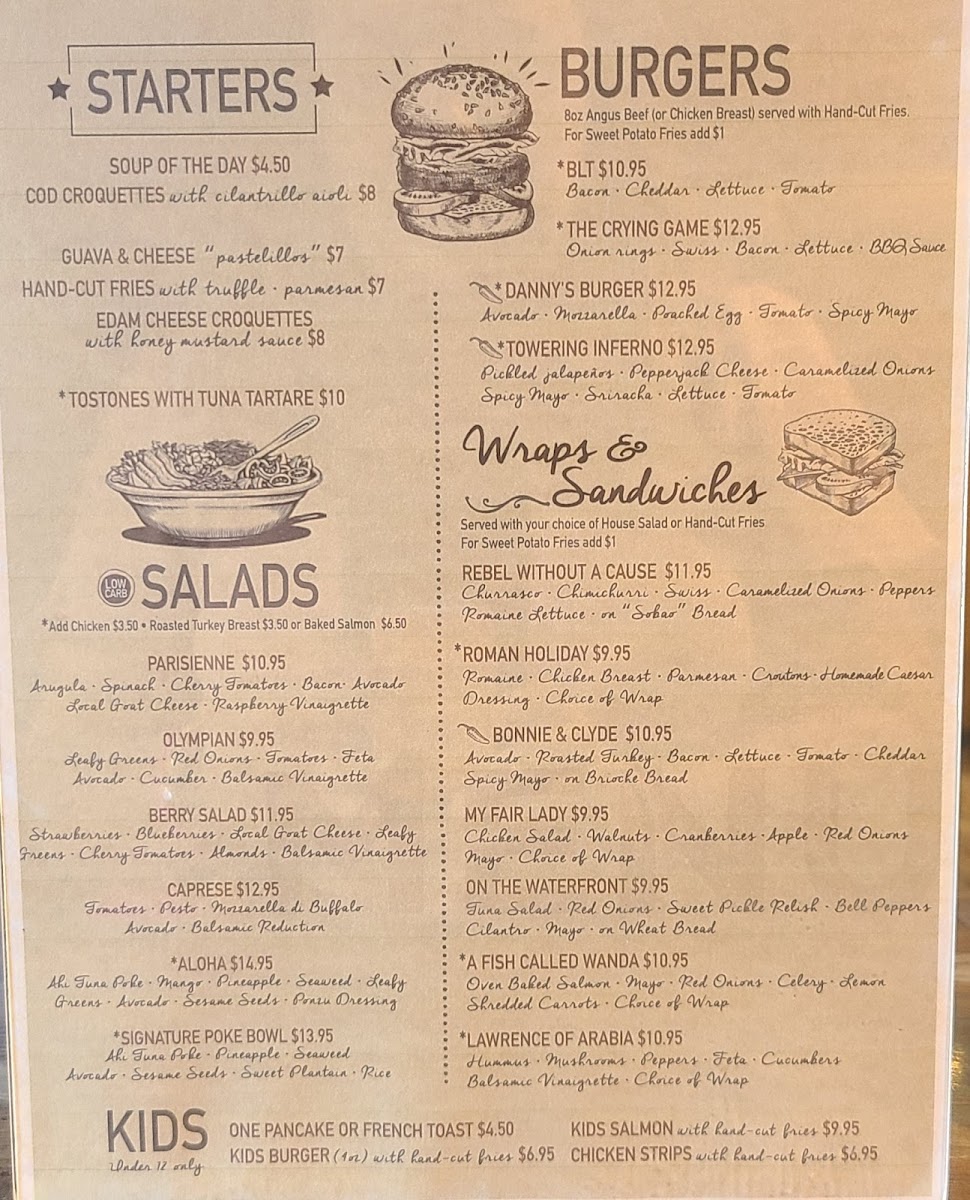 STARTERS
SOUP OF THE DAY $4.50
COD CROQUETTES with cilantrillo aioli $8
GUAVA & CHEESE "pastelillos" $7
HAND-CUT FRIES with truffle · parmesan $7
EDAM CHEESE CROQUETTES
with honey mustard sauce $8
*TOSTONES WITH TUNA TARTARE $10
LOW CARB
SALADS
*Add Chicken $3.50 • Roasted Turkey Breast $3.50 or Baked Salmon $6.50
PARISIENNE $10.95
Arugula · Spinach · Cherry Tomatoes · Bacon · Avocado
Local Goat Cheese · Raspberry Vinaigrette
OLYMPIAN $9.95
Leafy Greens · Red Onions · Tomatoes · Feta
Avocado · Cucumber · Balsamic Vinaigrette
BERRY SALAD $11.95
Strawberries · Blueberries · Local Goat Cheese · Leafy
Greens · Cherry Tomatoes · Almonds · Balsamic Vinaigrette
CAPRESE $12.95
Tomatoes · Pesto · Mozzarella di Buffalo
Avocado · Balsamic Reduction
*ALOHA $14.95
Ahi Tuna Poke · Mango · Pineapple · Seaweed · Leafy
Greens · Avocado · Sesame Seeds · Ponzu Dressing
*SIGNATURE POKE BOWL $13.95
Ahi Tuna Poke · Pineapple · Seaweed
Avocado · Sesame Seeds · Sweet Plantain · Rice
BURGERS
8oz Angus Beef (or Chicken Breast) served with Hand-Cut Fries.
For Sweet Potato Fries add $1
*BLT $10.95
Bacon · Cheddar · Lettuce · Tomato
*THE CRYING GAME $12.95
Onion rings · Swiss · Bacon · Lettuce · BBQ Sauce
*DANNY'S BURGER $12.95
Avocado · Mozzarella · Poached Egg · Tomato · Spicy Mayo
*TOWERING INFERNO $12.95
Pickled jalapeños · Pepperjack Cheese · Caramelized Onions
Spicy Mayo · Sriracha · Lettuce · Tomato
Wraps &
Sandwiches
Served with your choice of House Salad or Hand-Cut Fries
For Sweet Potato Fries add $1
REBEL WITHOUT A CAUSE $11.95
Churrasco · Chimichurri · Swiss · Caramelized Onions · Peppers
Romaine Lettuce · on "Sobao" Bread
*ROMAN HOLIDAY $9.95
Romaine · Chicken Breast · Parmesan · Croutons · Homemade Caesar
Dressing · Choice of Wrap
BONNIE & CLYDE $10.95
Avocado · Roasted Turkey · Bacon · Lettuce · Tomato · Cheddar
Spicy Mayo · on Brioche Bread
MY FAIR LADY $9.95
Chicken Salad · Walnuts · Cranberries · Apple · Red Onions
Mayo · Choice of Wrap
ON THE WATERFRONT $9.95
Tuna Salad · Red Onions · Sweet Pickle Relish · Bell Peppers
Cilantro · Mayo · on Wheat Bread
*A FISH CALLED WANDA $10.95
Oven Baked Salmon · Mayo · Red Onions · Celery · Lemon
Shredded Carrots · Choice of Wrap
*LAWRENCE OF ARABIA $10.95
Hummus · Mushrooms · Peppers · Feta · Cucumbers
Balsamic Vinaigrette · Choice of Wrap
KIDS
Under 12 only
ONE PANCAKE OR FRENCH TOAST $4.50
KIDS BURGER (4oz) with hand-cut fries $6.95
KIDS SALMON with hand-cut fries $9.95
CHICKEN STRIPS with hand-cut fries $6.95